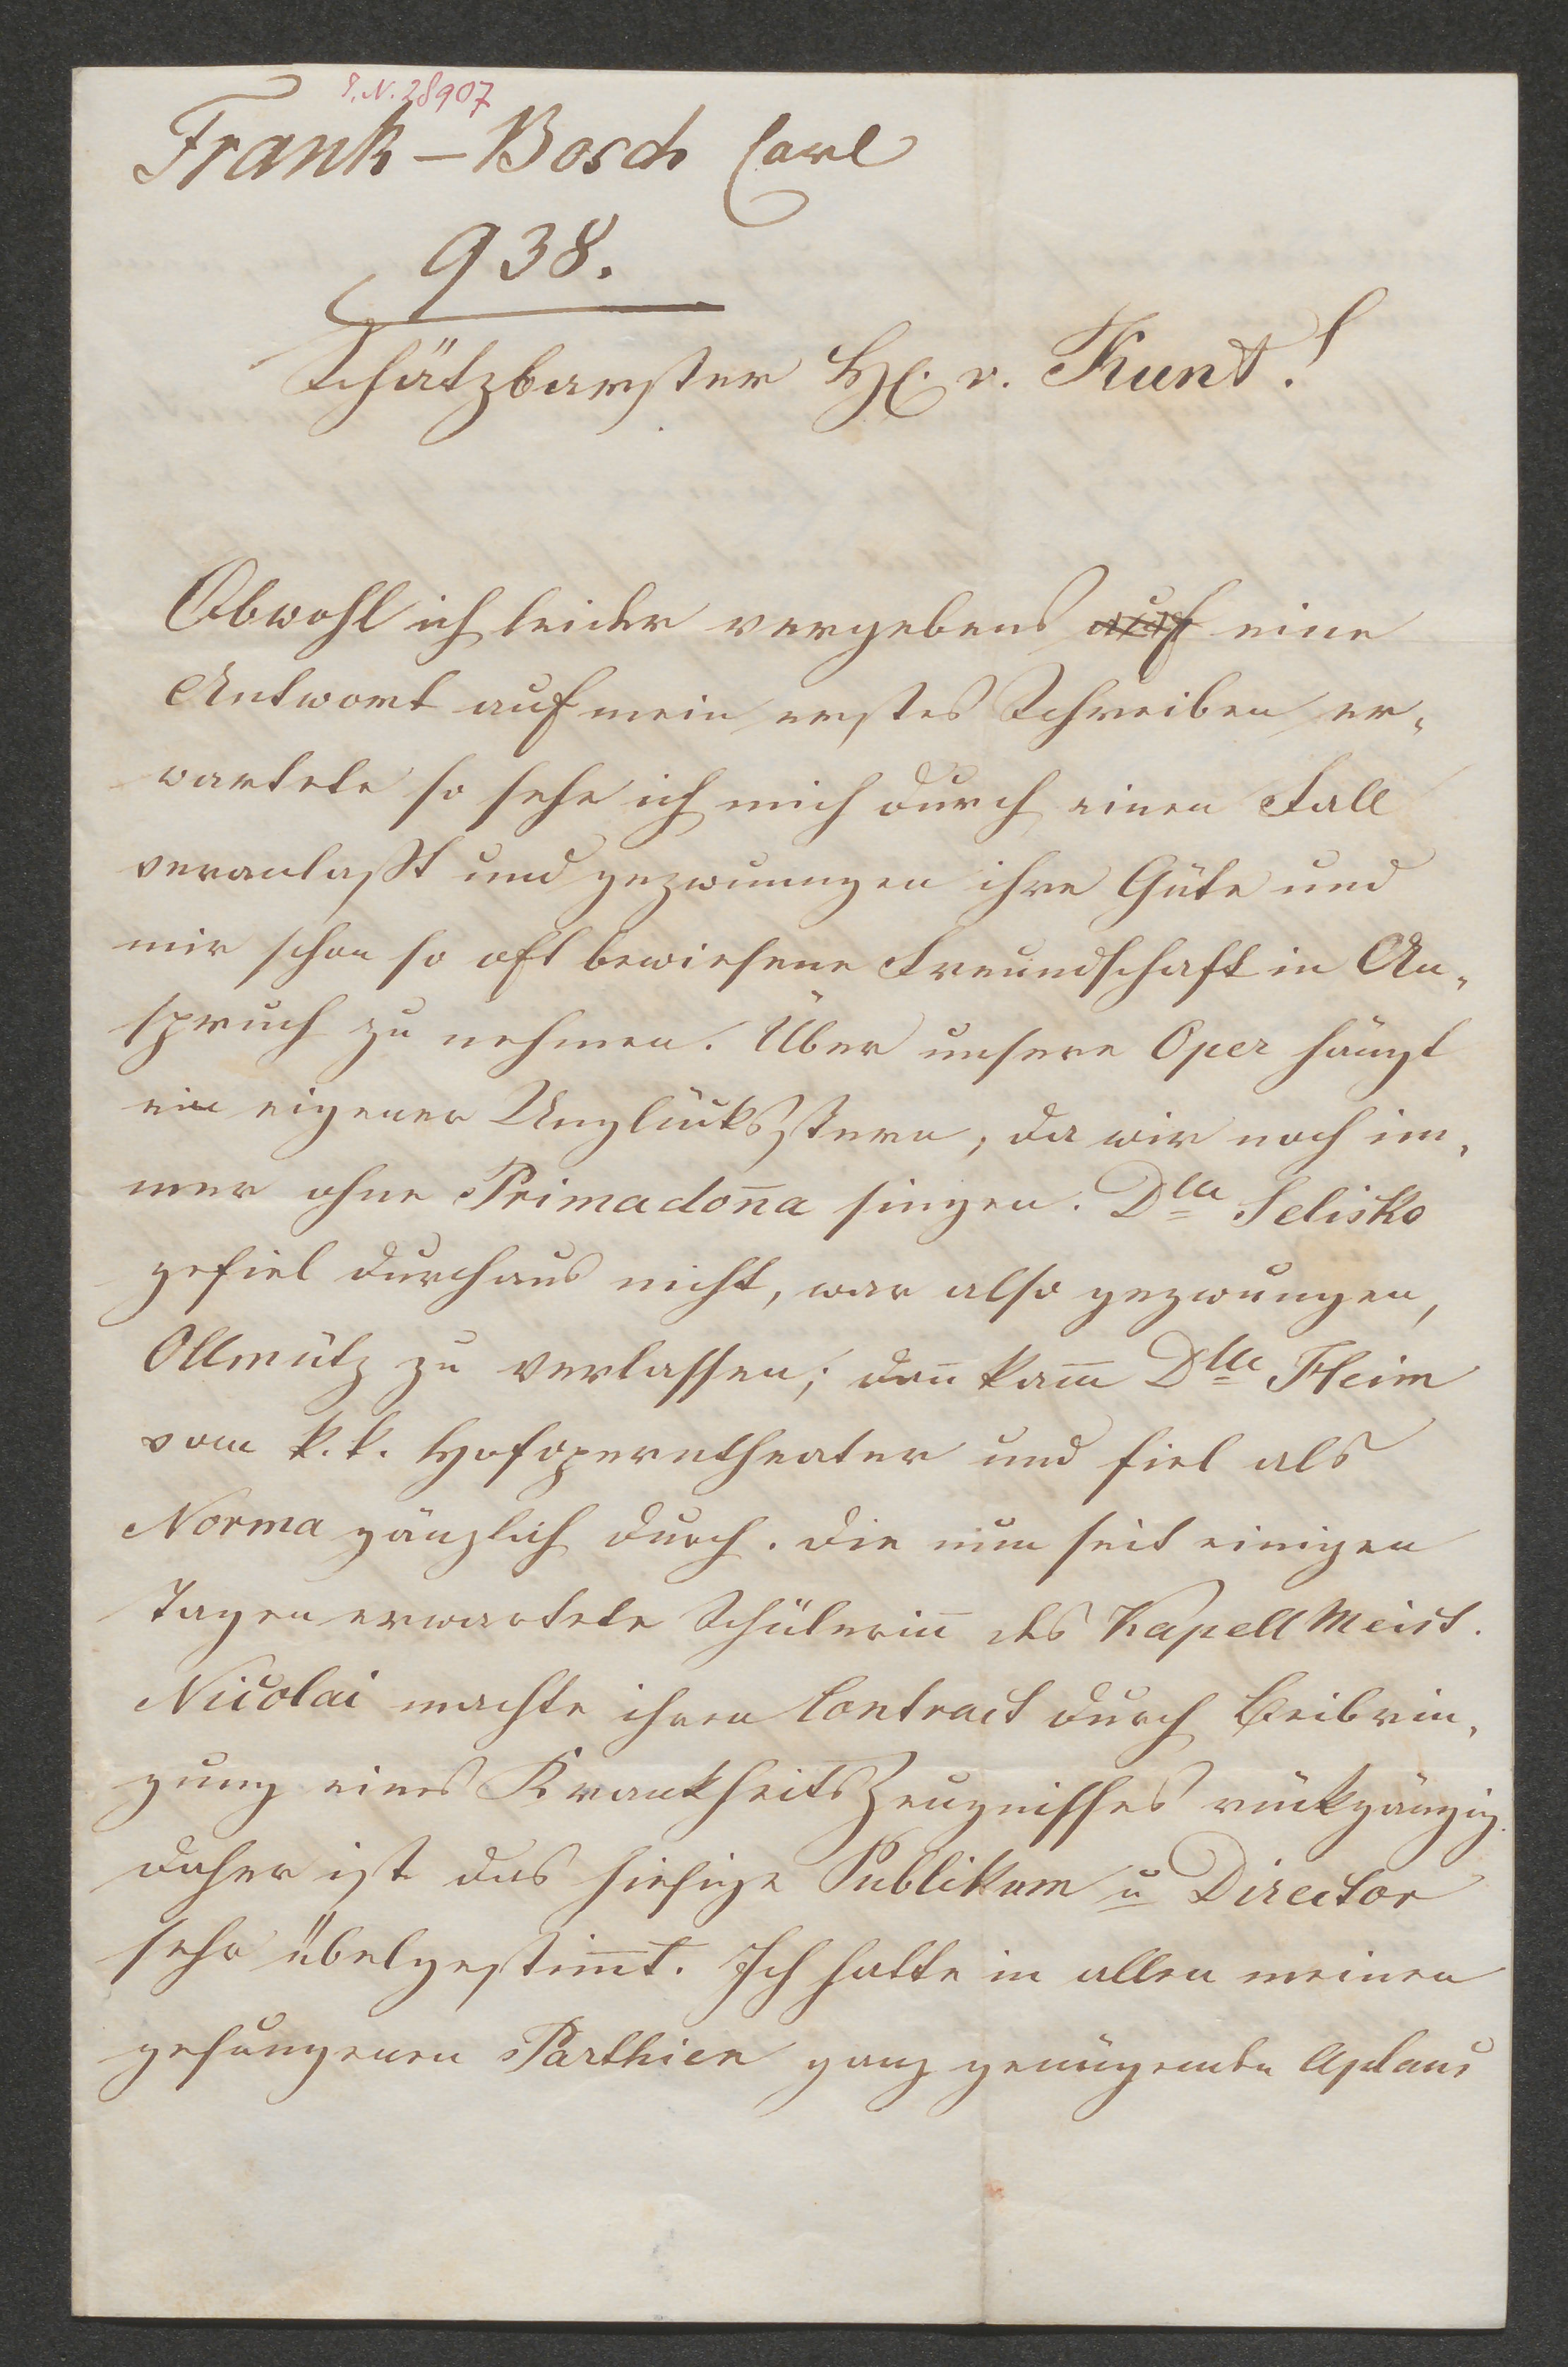 I. N. 28907
Frank – Bosch Carl
938.
Schätzbarster H. v. Kunt!
Obwohl ich leider vergebens auf eine
Antwort auf mein erstes Schreiben er-
wartete so sehe ich mich durch einen Fall
veranlaßt und gezwungen ihre Güte und
mir schon so oft bewiesene Freundschaft in An-
spruch zu nehmen. Über unsere Oper hängt
ein eigener Unglücksstern, da wir noch im-
mer ohne Primadon̄a singen. DlleSelisko
gefiel durchaus nicht, war also gezwungen,
Ollmütz zu verlassen; dan̄ kam̄ Dlle Heim
vom k. k. Hofoperntheater und fiel als
Norma gänzlich durch. Die nun seit einigen
Tagen erwartete Schülerin̄ des Kapell Meist.
Nicolai machte ihren Contract durch Beibrin-
gung eines Krankheits Zeugnisses rückgängig.
daher ist das hiesige Publikum u Director
sehr übelgestim̄t. Ich hatte in allen meinen
gesungenen Parthien ganz genügenden Aplaus